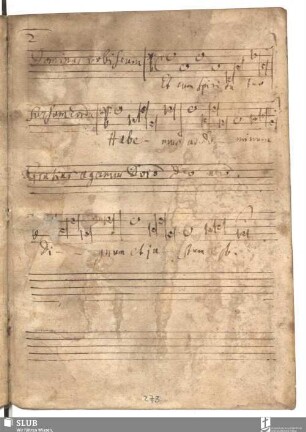 2
Dominus vobiscum
Et cum spiritu tuo
Sursum corda
Habe- mus ad Do- minum
Gratias agamus Dno Deo
Di- gnum et ju- stum est.
SLUB
Wir führen Wissen.